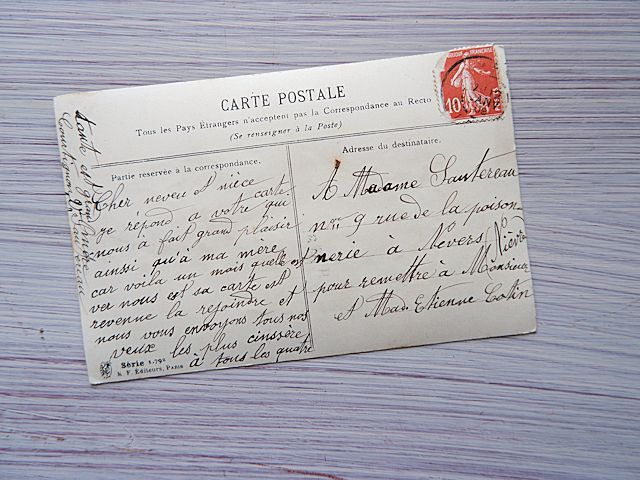 CARTE POSTALE
Tous les Pays Étrangers n'acceptent pas la Correspondance au Recto
(Se renseigner à la Poste)
Partie réservée à la correspondance.
Cher neveu et nièce
je répond a votre carte qui
nous à fait grand plaisir
ainsi qu'a ma mère
car voila un mois quelle est
ver nous et sa carte est
revenue la rejoindre et
nous vous envoyons tous nos
veux les plus cinssère
à tous les quatre
Série 1.792
K. F. Éditeurs, Paris
Adresse du destinataire.
A Madame Sautereau
n° 9 rue de la poison-
nerie à Nevers Nièvre
pour remettre à Monsieur
et Mad. Etienne Cottin
10